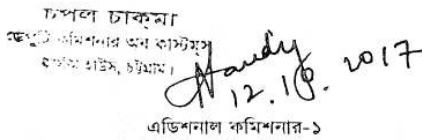 চপল চাকমা
ডেপুটি কমিশনার অব কাস্টমস
কাস্টম হাউস, চট্টগ্রাম।
12.10.2017
এডিশনাল কমিশনার-১